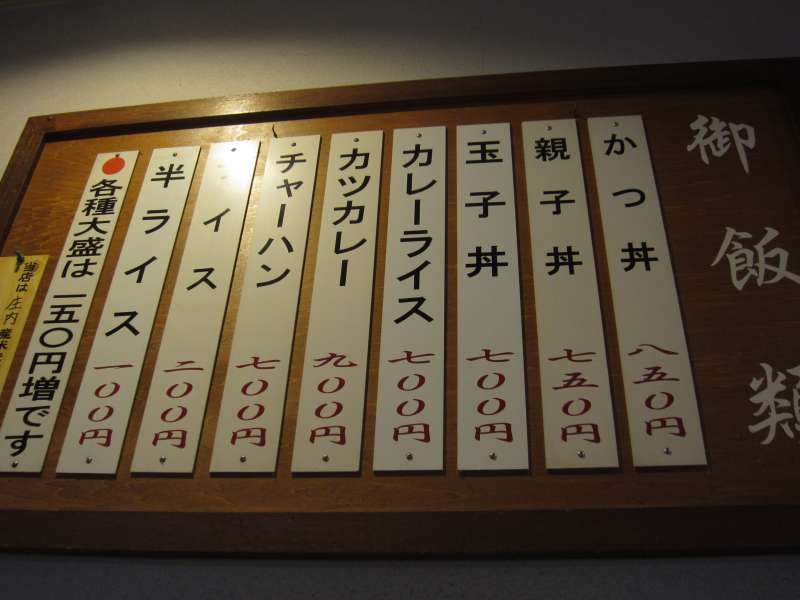 御飯類
かつ丼 八五〇円
親子丼 七五〇円
玉子丼 七〇〇円
カレーライス 七〇〇円
カツカレー 九〇〇円
チャーハン 七〇〇円
イス 二〇〇円
半ライス 一〇〇円
各種大盛は 一五〇円増です
当店は庄内産米